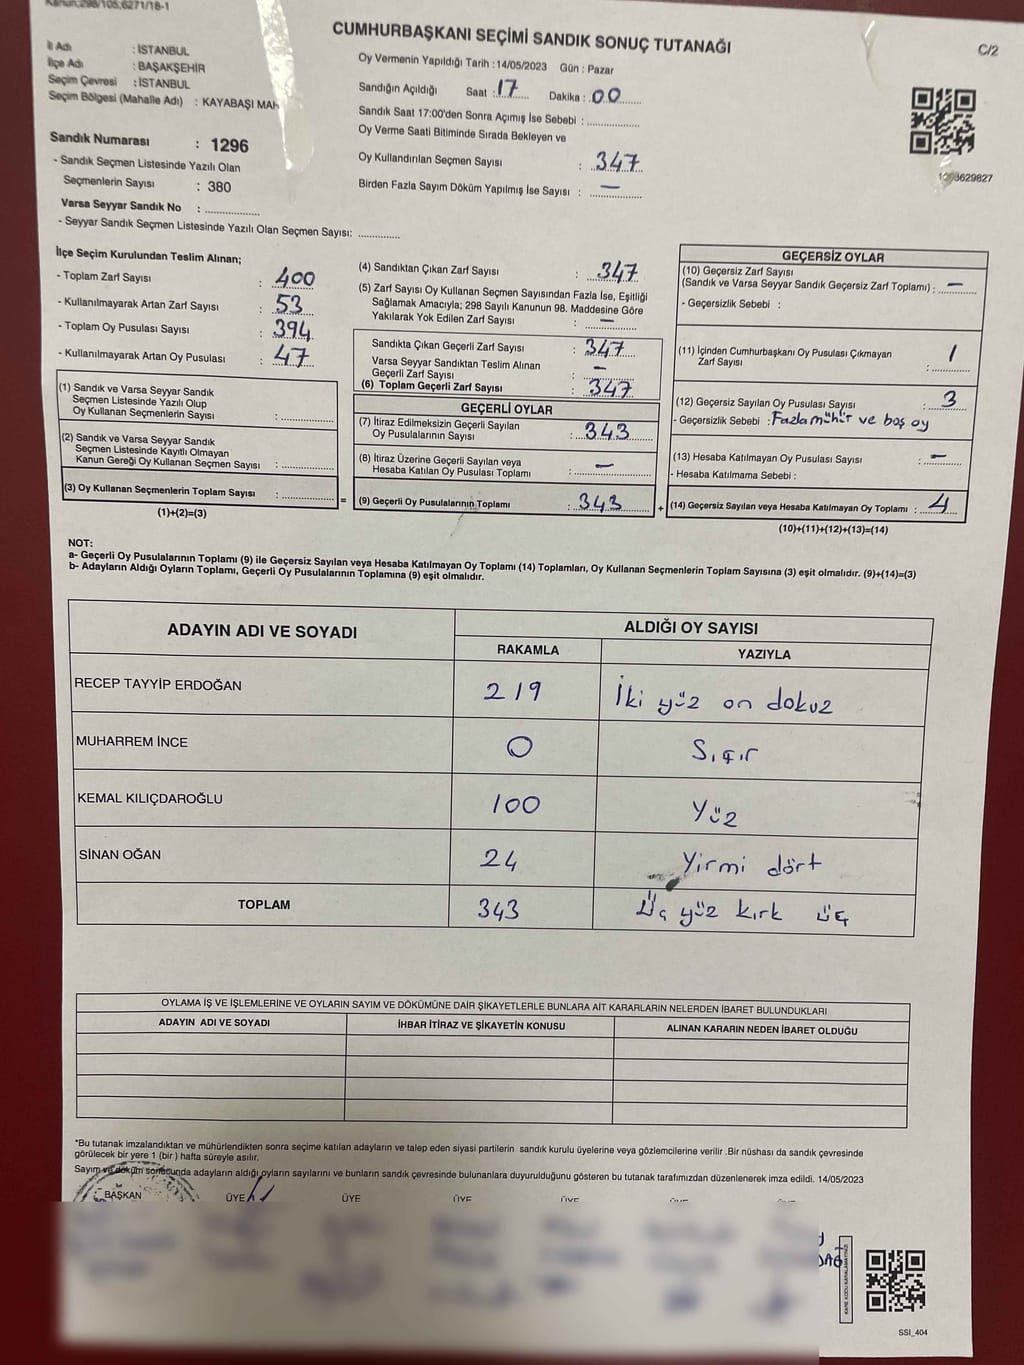 Kanun;298/105,6271/18-1
CUMHURBAŞKANI SEÇİMİ SANDIK SONUÇ TUTANAĞI
C/2
İl Adı : İSTANBUL
İlçe Adı : BAŞAKŞEHİR
Seçim Çevresi : İSTANBUL
Seçim Bölgesi (Mahalle Adı) : KAYABAŞI MAH
Sandık Numarası : 1296
- Sandık Seçmen Listesinde Yazılı Olan
Seçmenlerin Sayısı : 380
Varsa Seyyar Sandık No : ..................
- Seyyar Sandık Seçmen Listesinde Yazılı Olan Seçmen Sayısı: ..............
Oy Vermenin Yapıldığı Tarih : 14/05/2023 Gün : Pazar
Sandığın Açıldığı Saat : 17 Dakika : 00
Sandık Saat 17:00'den Sonra Açımış İse Sebebi : ..................
Oy Verme Saati Bitiminde Sırada Bekleyen ve
Oy Kullandırılan Seçmen Sayısı : 347
Birden Fazla Sayım Döküm Yapılmış İse Sayısı : —
İlçe Seçim Kurulundan Teslim Alınan;
- Toplam Zarf Sayısı : 400
- Kullanılmayarak Artan Zarf Sayısı : 53
- Toplam Oy Pusulası Sayısı : 394
- Kullanılmayarak Artan Oy Pusulası : 47
(1) Sandık ve Varsa Seyyar Sandık
Seçmen Listesinde Yazılı Olup
Oy Kullanan Seçmenlerin Sayısı : ..................
(2) Sandık ve Varsa Seyyar Sandık
Seçmen Listesinde Kayıtlı Olmayan
Kanun Gereği Oy Kullanan Seçmen Sayısı : ..................
(3) Oy Kullanan Seçmenlerin Toplam Sayısı : ..................
(1)+(2)=(3)
=
(4) Sandıktan Çıkan Zarf Sayısı : 347
(5) Zarf Sayısı Oy Kullanan Seçmen Sayısından Fazla İse, Eşitliği
Sağlamak Amacıyla; 298 Sayılı Kanunun 98. Maddesine Göre
Yakılarak Yok Edilen Zarf Sayısı : —
Sandıkta Çıkan Geçerli Zarf Sayısı : 347
Varsa Seyyar Sandıktan Teslim Alınan
Geçerli Zarf Sayısı : —
(6) Toplam Geçerli Zarf Sayısı : 347
GEÇERLİ OYLAR
(7) İtiraz Edilmeksizin Geçerli Sayılan
Oy Pusulalarının Sayısı : 343
(8) İtiraz Üzerine Geçerli Sayılan veya
Hesaba Katılan Oy Pusulası Toplamı : —
(9) Geçerli Oy Pusulalarının Toplamı : 343
+
GEÇERSİZ OYLAR
(10) Geçersiz Zarf Sayısı
(Sandık ve Varsa Seyyar Sandık Geçersiz Zarf Toplamı) : —
- Geçersizlik Sebebi :
(11) İçinden Cumhurbaşkanı Oy Pusulası Çıkmayan
Zarf Sayısı : 1
(12) Geçersiz Sayılan Oy Pusulası Sayısı : 3
- Geçersizlik Sebebi : Fazla mühür ve boş oy
(13) Hesaba Katılmayan Oy Pusulası Sayısı : —
- Hesaba Katılmama Sebebi :
(14) Geçersiz Sayılan veya Hesaba Katılmayan Oy Toplamı : 4
(10)+(11)+(12)+(13)=(14)
NOT:
a- Geçerli Oy Pusulalarının Toplamı (9) ile Geçersiz Sayılan veya Hesaba Katılmayan Oy Toplamı (14) Toplamları, Oy Kullanan Seçmenlerin Toplam Sayısına (3) eşit olmalıdır. (9)+(14)=(3)
b- Adayların Aldığı Oyların Toplamı, Geçerli Oy Pusulalarının Toplamına (9) eşit olmalıdır.
ADAYIN ADI VE SOYADI ALDIĞI OY SAYISI
RAKAMLA YAZIYLA
RECEP TAYYİP ERDOĞAN 219 İki yüz on dokuz
MUHARREM İNCE 0 Sıfır
KEMAL KILIÇDAROĞLU 100 Yüz
SİNAN OĞAN 24 Yirmi dört
TOPLAM 343 Üç yüz kırk üç
OYLAMA İŞ VE İŞLEMLERİNE VE OYLARIN SAYIM VE DÖKÜMÜNE DAİR ŞİKAYETLERLE BUNLARA AİT KARARLARIN NELERDEN İBARET BULUNDUKLARI
ADAYIN ADI VE SOYADI İHBAR İTİRAZ VE ŞİKAYETİN KONUSU ALINAN KARARIN NEDEN İBARET OLDUĞU
*Bu tutanak imzalandıktan ve mühürlendikten sonra seçime katılan adayların ve talep eden siyasi partilerin sandık kurulu üyelerine veya gözlemcilerine verilir. Bir nüshası da sandık çevresinde
görülecek bir yere 1 (bir ) hafta süreyle asılır.
Sayım ve döküm sonucunda adayların aldığı oyların sayılarını ve bunların sandık çevresinde bulunanlara duyurulduğunu gösteren bu tutanak tarafımızdan düzenlenerek imza edildi. 14/05/2023
BAŞKAN ÜYE ÜYE ÜYE ÜYE
SSI_404